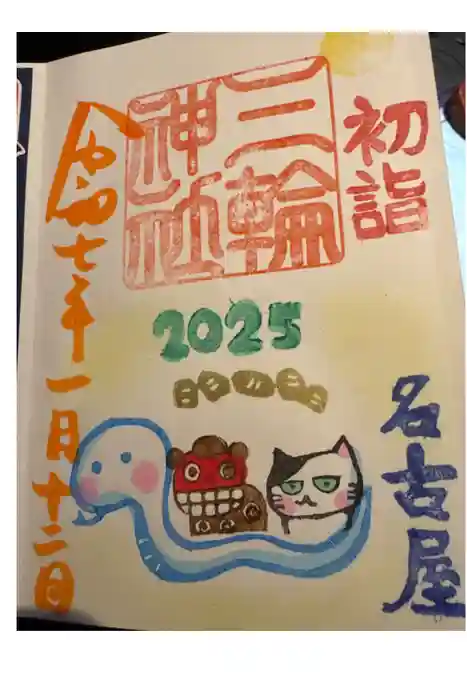 初詣
三輪
神社
2025
名古屋
令和七年一月十二日